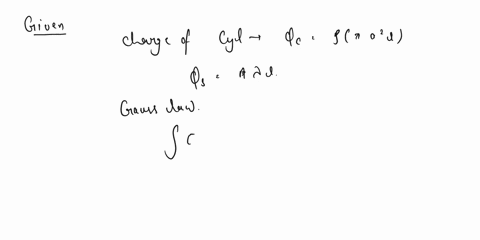 Given
charge of Cyl → Qc = ρ(π a² l)
Qs = A λ l.
Gauss law.
∫ C